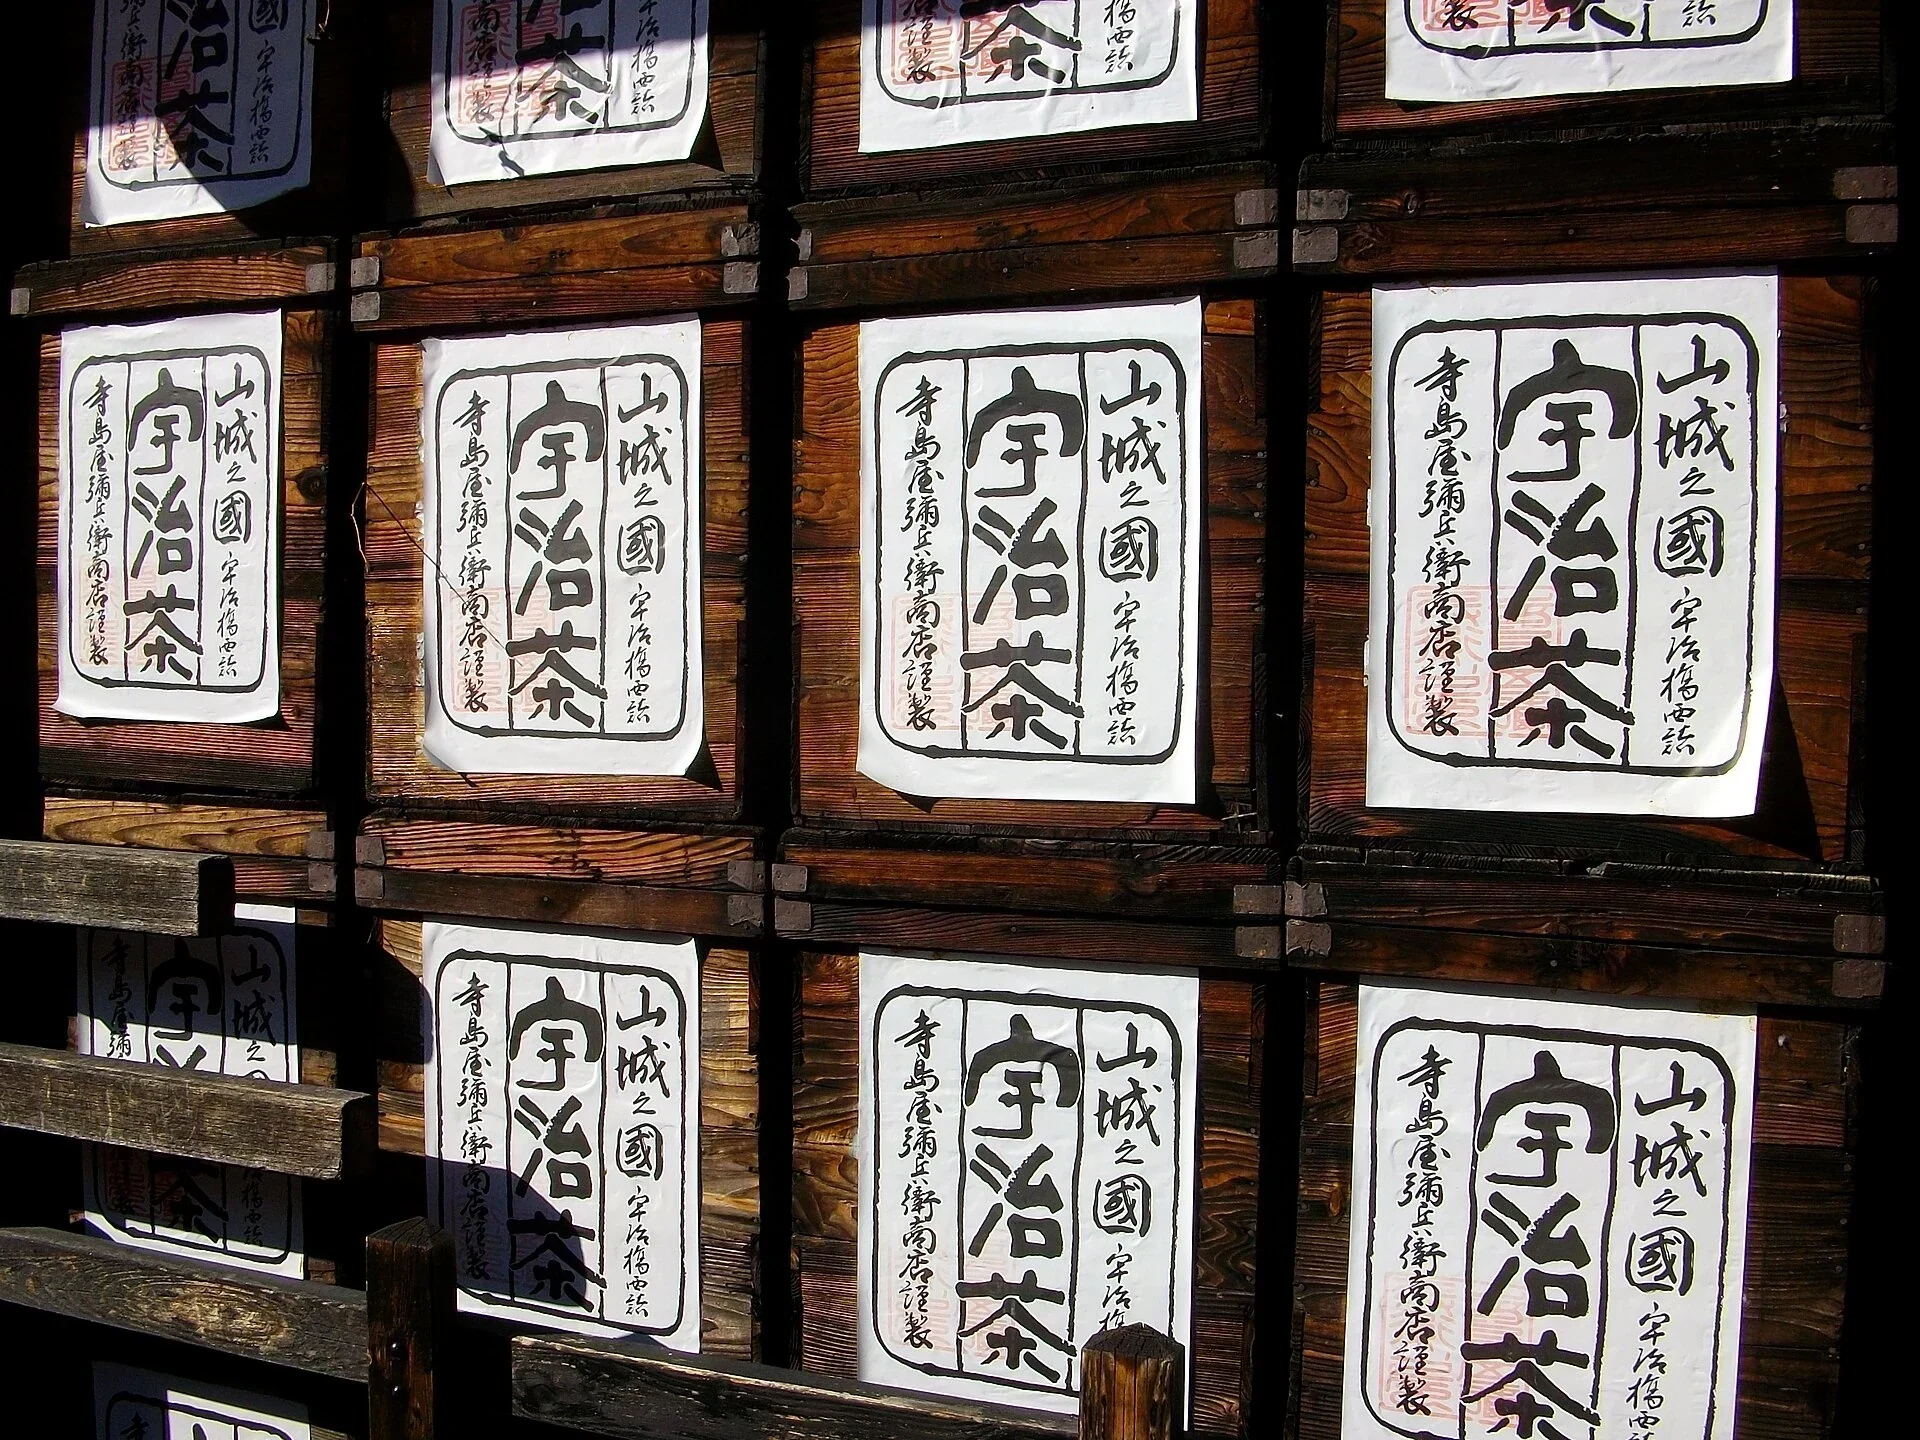 國 宇治橋西詰
治茶
彌兵衛商店謹製
治橋西詰
茶
商店謹製
橋西詰
茶
店謹製
詰
茶
製
山城之國 宇治橋西詰
宇治茶
寺島屋彌兵衛商店謹製
山城之國 宇治橋西詰
宇治茶
寺島屋彌兵衛商店謹製
山城之國 宇治橋西詰
宇治茶
寺島屋彌兵衛商店謹製
山城之國 宇治橋西詰
宇治茶
寺島屋彌兵衛商店謹製
山城之 橋西詰
宇 茶
寺島屋彌
山城之國 宇治橋西詰
宇治茶
寺島屋彌兵衛商店謹製
山城之國 宇治
宇治茶
寺島屋彌兵衛商店謹製
山城之國 宇治橋西
宇治茶
寺島屋彌兵衛商店謹製
寺